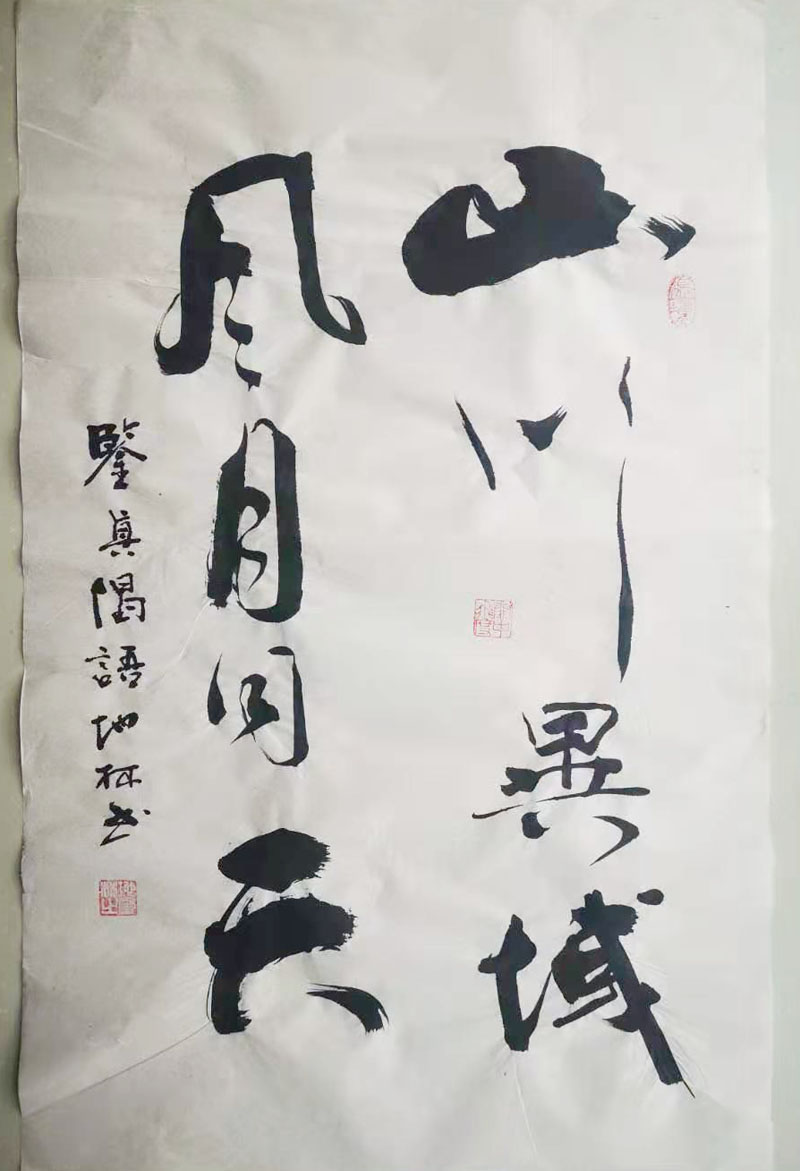 山川異域
風月同天
鑒真偈語地林书